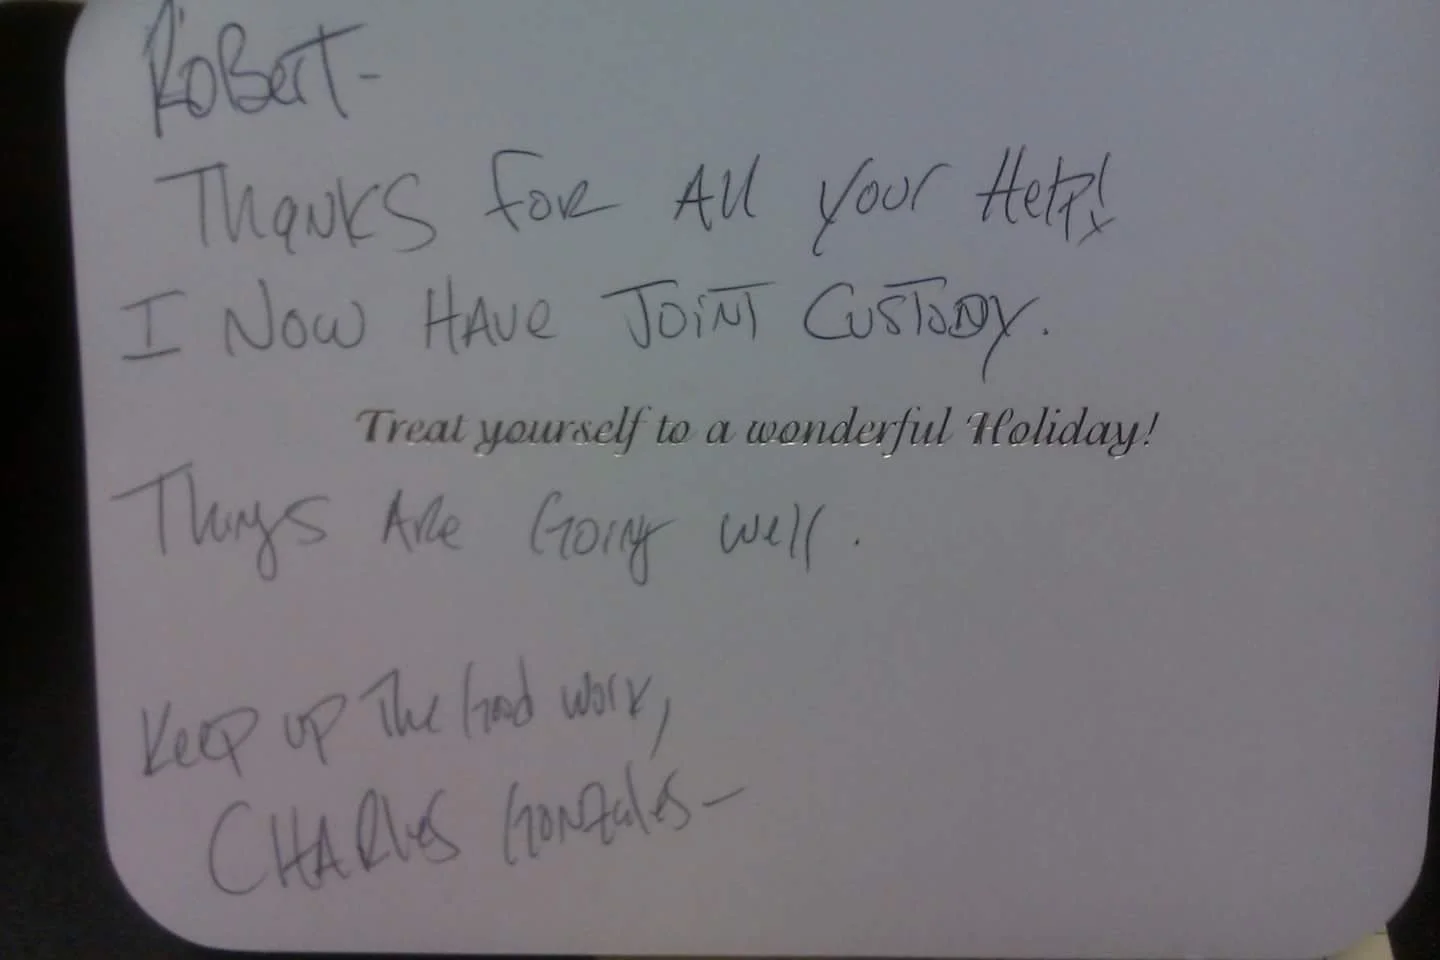 Robert-
Thanks for All your Help!
I Now Have Joint Custody.
Treat yourself to a wonderful Holiday!
Things Are Going well.
Keep up The Good work,
Charles Gonzales-